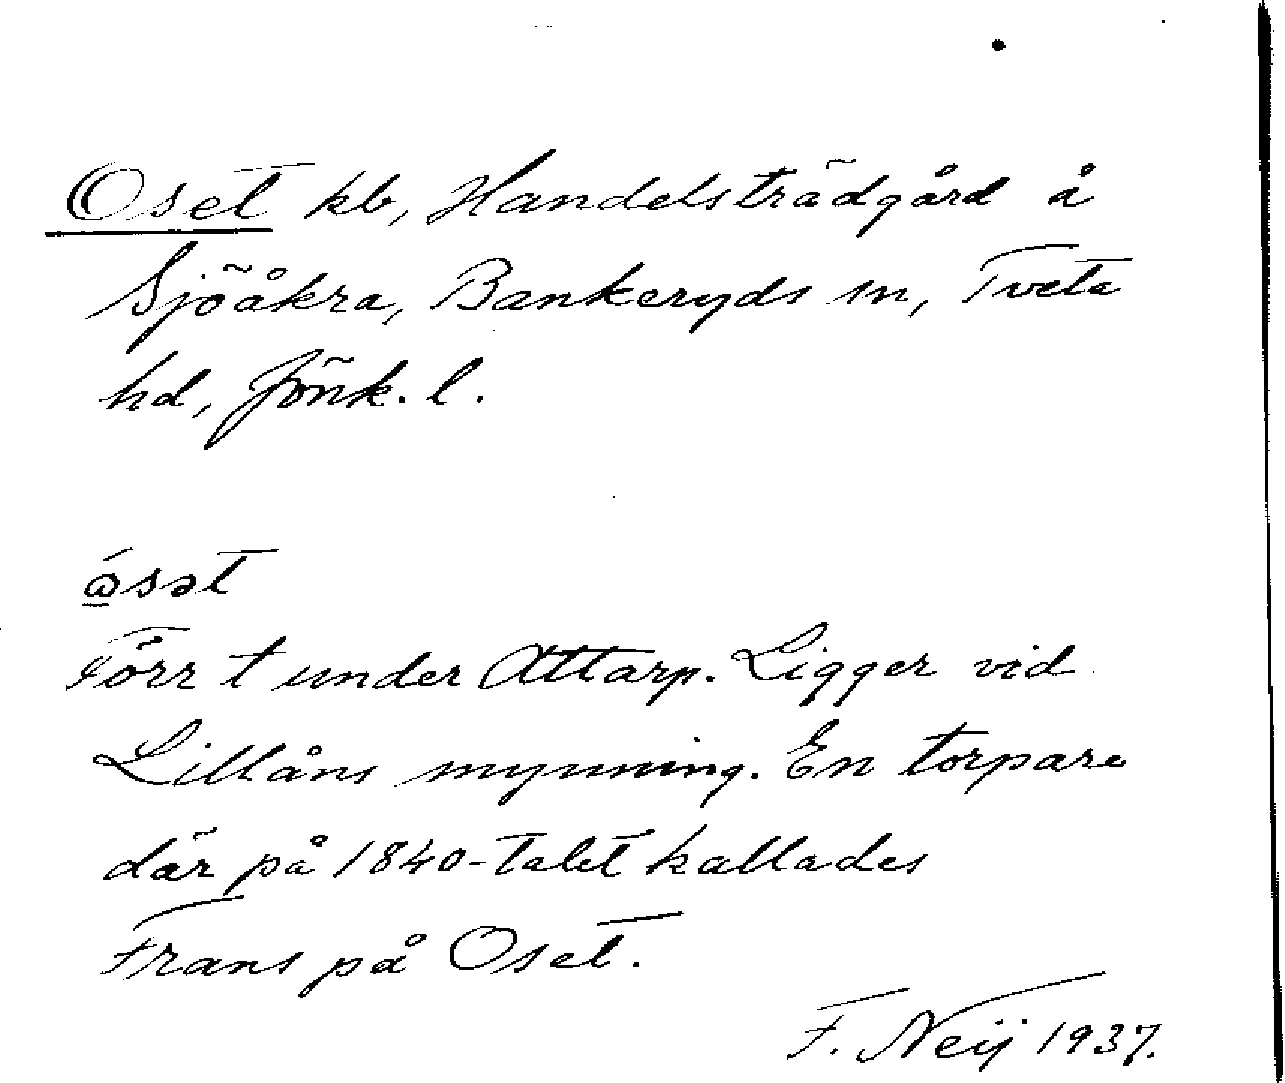 Oset kb, Handelsträdgård å
Sjöåkra, Bankeryds sn, Tveta
hd, Jönk. l.
Förr t under Attarp. Ligger vid
Lillåns mynning. En torpare
där på 1840-talet kallades
Frans på Oset.
F. Neij 1937.